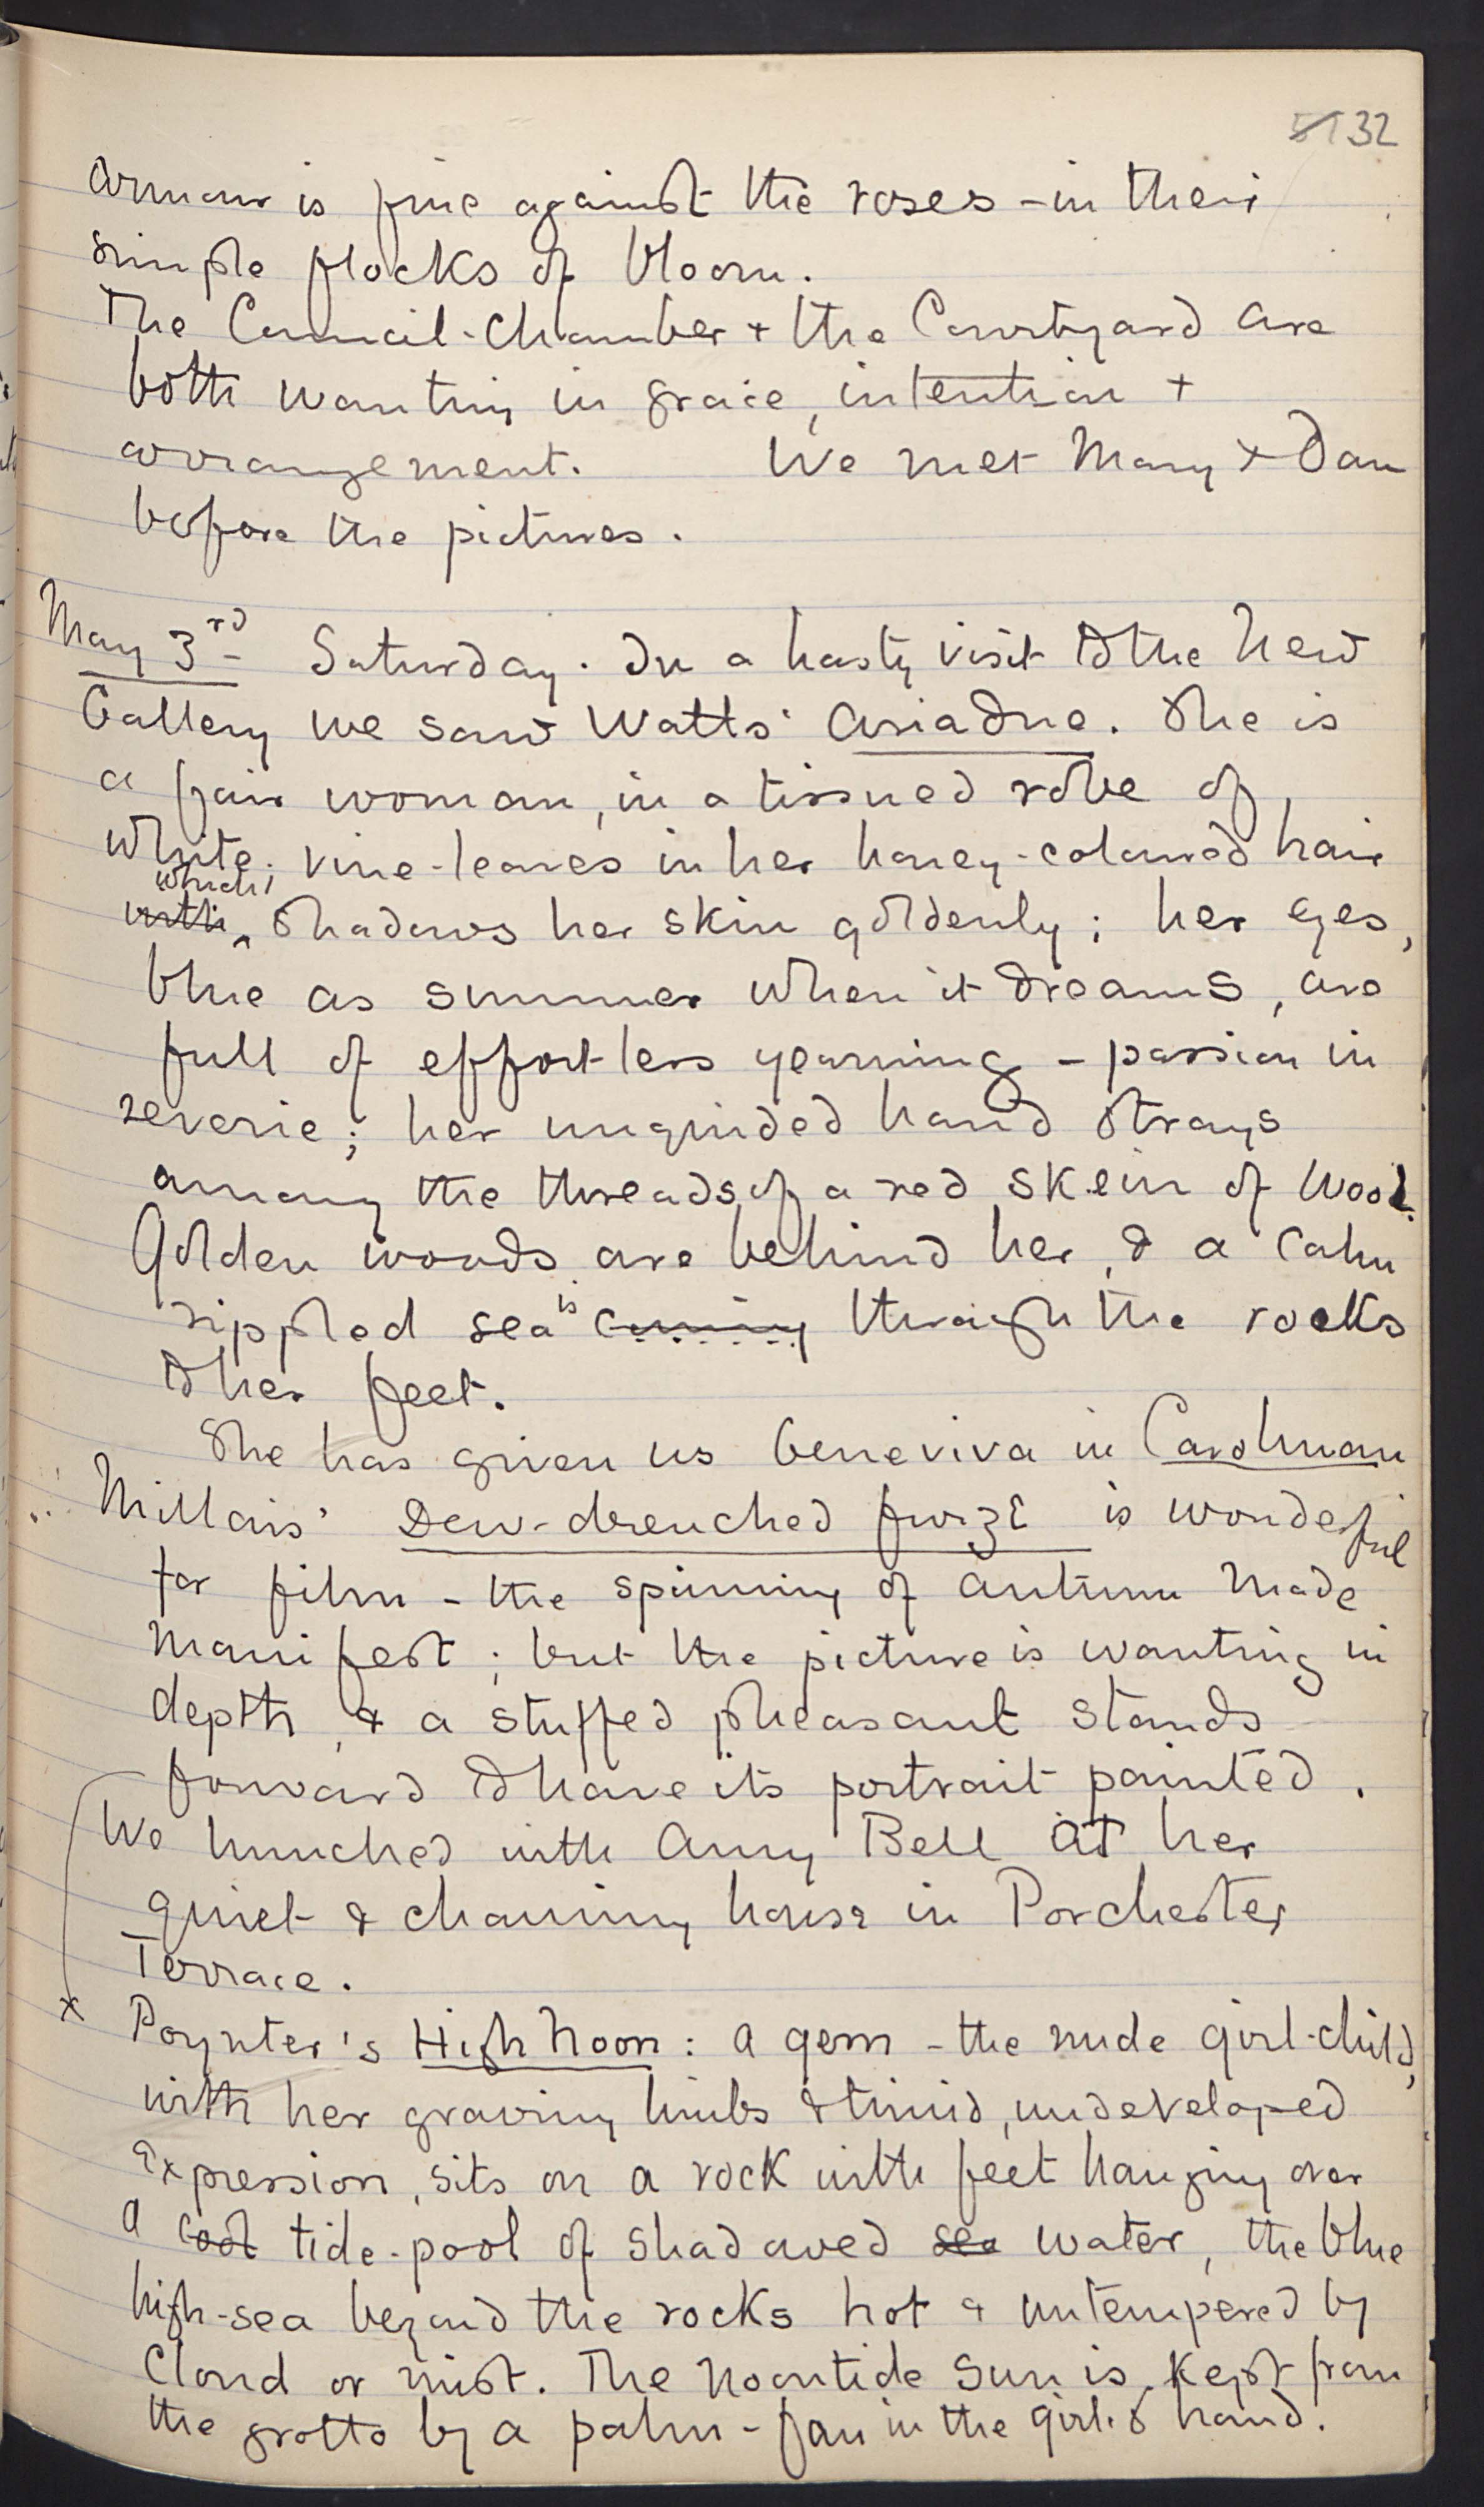 32
armour is fine against the roses – in their
simple flocks of bloom.
The Council-Chamber + the Courtyard are
both wanting in grace, intention +
arrangement. We met Mary + Dan
before the pictures.
May 3rd Saturday. In a hasty visit to the New
Gallery we saw Watts' Ariadne. She is
a fair woman, in a tissued robe of
white; vine-leaves in her honey-coloured hair
which
with shadows her skin goldenly; her eyes,
blue as summer when it dreams, are
full of effortless yearning – passion in
reverie; her unguided hand strays
among the threads of a red skein of wool.
Golden woods are behind her, & a calm
rippled sea is coming through the rocks
to her feet.
She has given us Geneviva in Carloman
Millais' Dew-drenched furze is wonderful
for film – the spinning of autumn made
manifest; but the picture is wanting in
depth, & a stuffed pheasant stands
forward to have its portrait painted.
We lunched with Amy Bell at her
quiet & charming house in Porchester
Terrace.
x Poynter's High Noon: a gem – the nude girl-child,
with her growing limbs & timid, undeveloped
expression, sits on a rock with feet hanging over
a cool tide-pool of shadowed sea water, the blue
high-sea beyond the rocks hot & untempered by
cloud or mist. The noontide sun is kept from
the grotto by a palm-fan in the girl's hand.